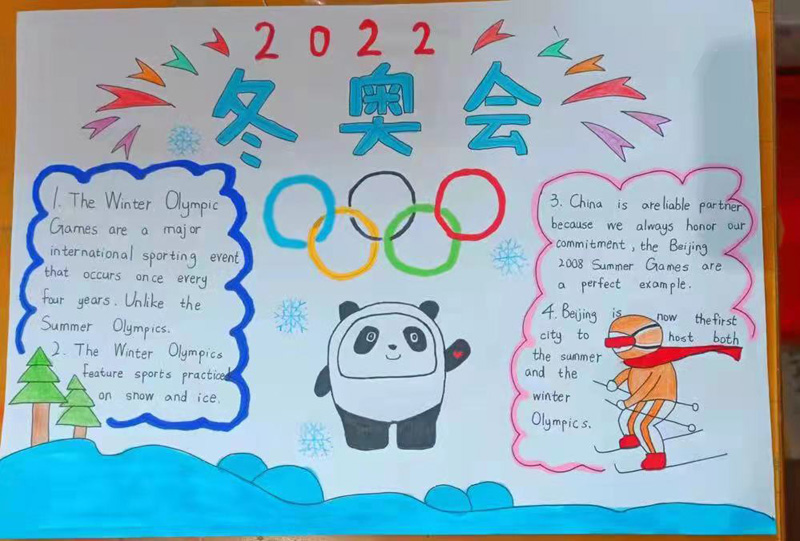 2022
冬奥会
1. The Winter Olympic
Games are a major
international sporting event
that occurs once every
four years. Unlike the
Summer Olympics.
2. The Winter Olympics
feature sports practiced
on snow and ice.
3. China is areliable partner
because we always honor our
commitment, the Beijing
2008 Summer Games are
a perfect example.
4. Beijing is now thefirst
city to host both
the summer
and the
winter
Olympics.